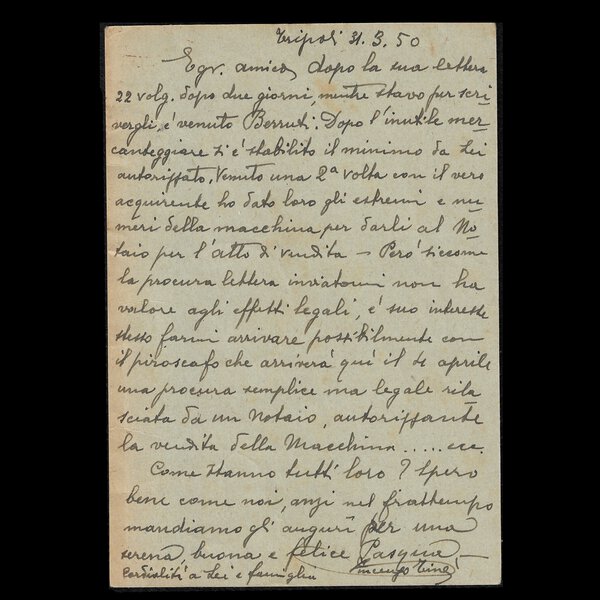 Tripoli 31.3.50
Egr. amico, dopo la sua lettera
22 volg. dopo due giorni, mentre stavo per scri
vergli, e' venuto Berruti. Dopo l'inutile mer-
canteggiare si e' stabilito il minimo da Lei
autorizzato. Venuto una 2ª volta con il vero
acquirente ho dato loro gli estremi e nu-
meri della macchina per darli al No-
taio per l'atto di vendita – Però siccome
la procura lettera inviatami non ha
valore agli effetti legali, e' suo interesse
stesso farmi arrivare possibilmente con
il piroscafo che arriverà quì il aprile
una procura semplice ma legale rila
sciata da un Notaio, autorizzante
la vendita della Macchina ..... ecc.
Come stanno tutti loro? Spero
bene come noi, anzi nel frattempo
mandiamo gli auguri per una
serena, buona e felice Pasqua –
Cordialità a Lei e famiglia Vincenzo